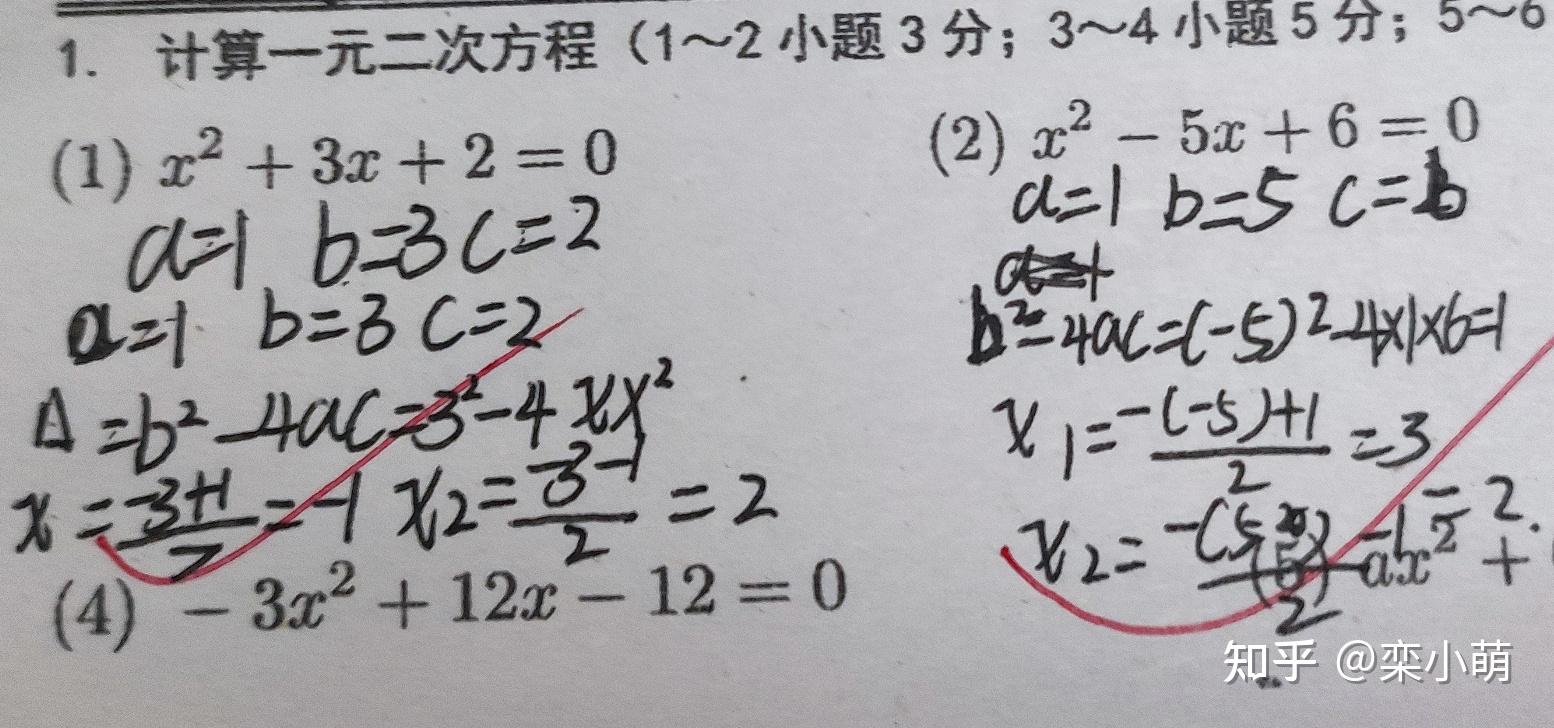 1. 计算一元二次方程（1～2 小题 3 分；3～4 小题 5 分；5～6
(1) x² + 3x + 2 = 0
a=1 b=3 c=2
a=1 b=3 c=2
Δ=b²-4ac=3²-4×x²
x=\frac{-3+1}{2}=-1 x₂=\frac{-3-1}{2}=2
(2) x² - 5x + 6 = 0
a=1 b=5 c=6
b²-4ac=(-5)²-4×1×6=1
x₁=\frac{-(-5)+1}{2}=3
x₂=\frac{-(5)-1}{2}=2.
(4) -3x² + 12x - 12 = 0
(5) ax² +
知乎 @栾小萌